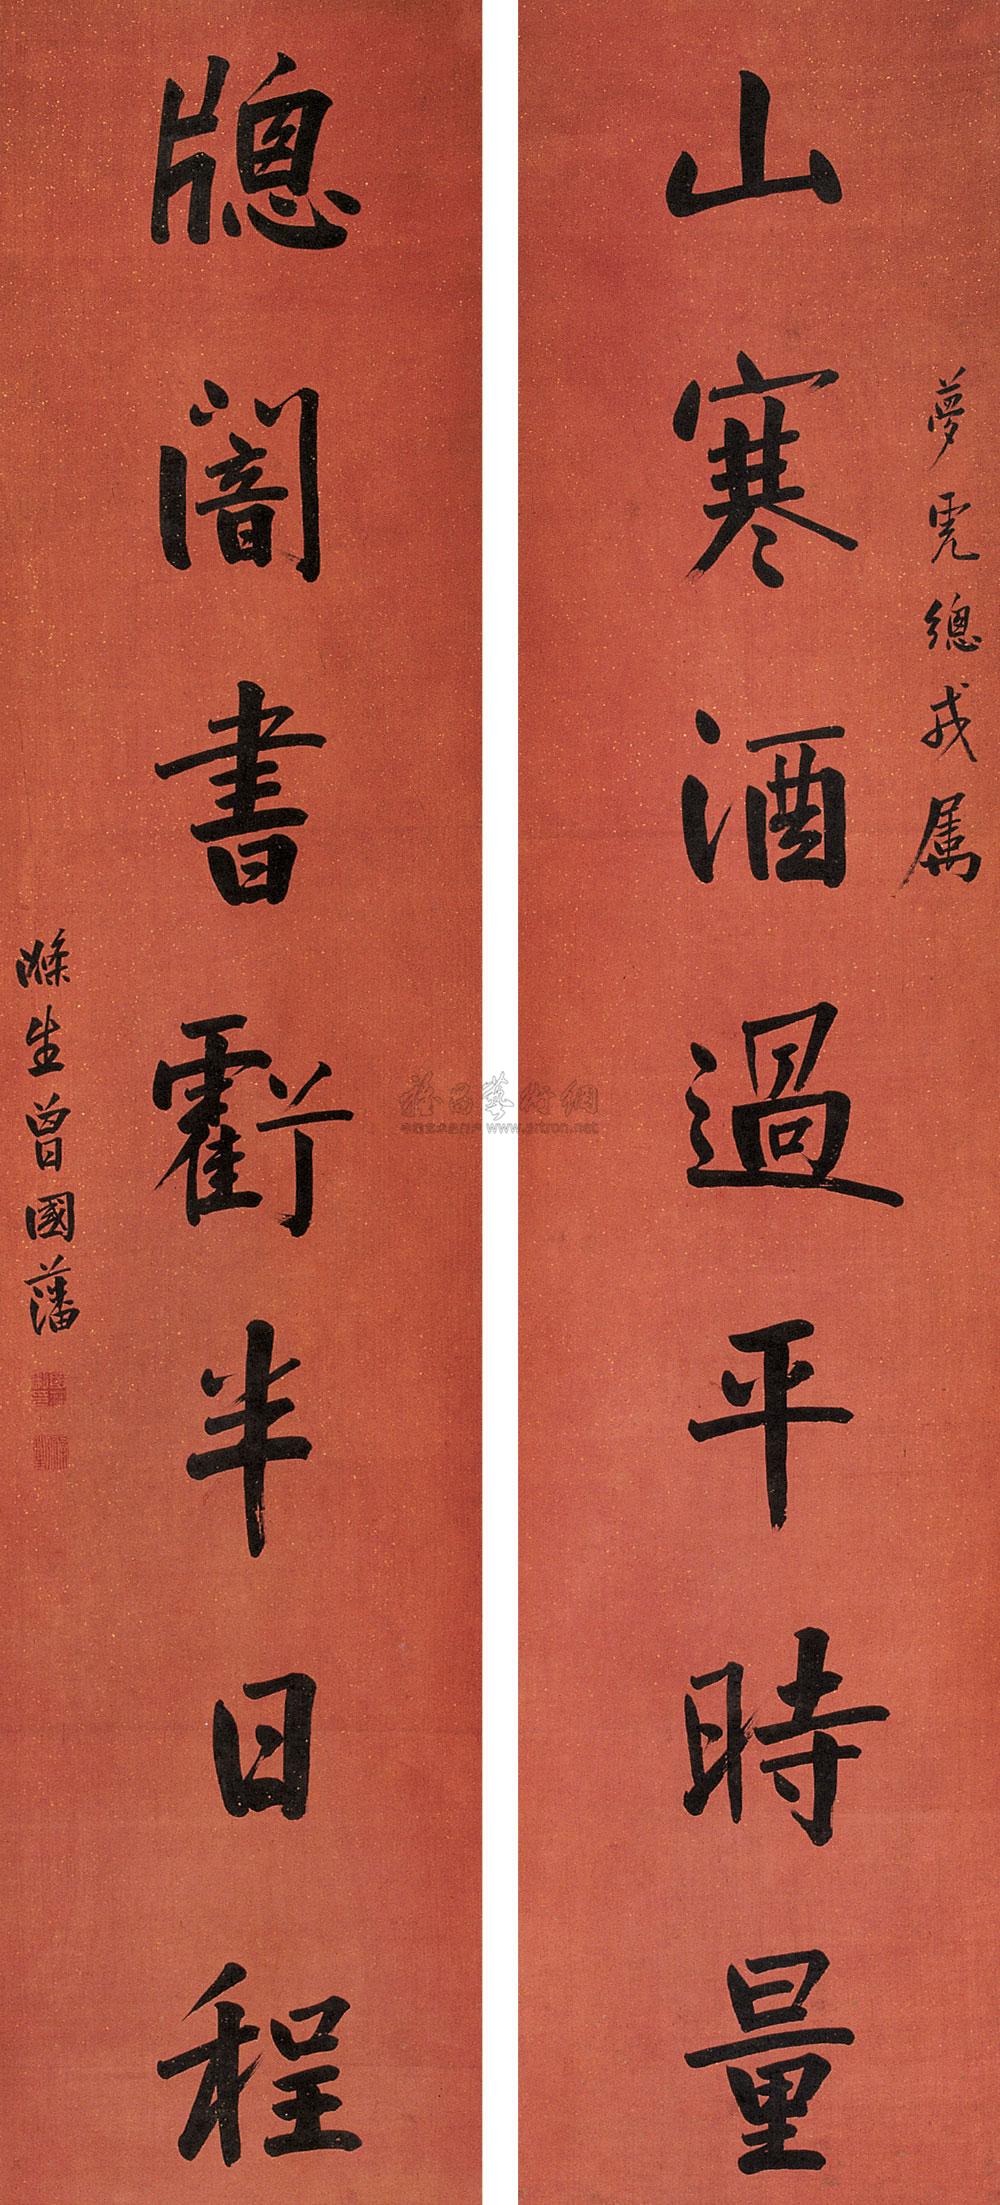 夢虎總戎属
山寒酒過平時量
牕闇書虧半日程
滌生曾國藩
www.artron.net